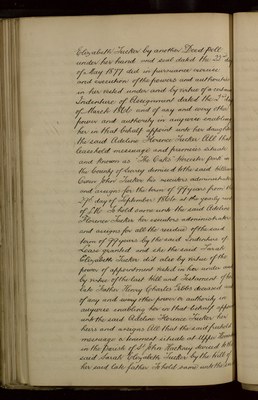 Elizabeth Tucker by another Deed Poll
under her hand and seal dated the 22nd day
of May 1877 did in pursuance exercise
and execution of the powers and authorities
in her vested under and by virtue of a certain
Indenture of Assignment dated the 2nd day
of March 1866 and of any and every other
power and authority in anywise enabling
her in that behalf appoint unto her daughter
the said Adeline Florence Tucker All that
leasehold messuage and premises situate
and known as The Oaks in
the County of Surrey demised to the said William
John Tucker his executors administrators
and assigns for the term of 99 years from the
29th day of September 1866 at the yearly rent
of To hold same unto the said Adeline
Florence Tucker her executors administrators
and assigns for all the residue of the said
term of 99 years by the said Indenture of
Lease granted and she the said Sarah
Elizabeth Tucker did also by virtue of the
power of appointment vested in her under and
by virtue of the last Will and Testament of her
late father Henry Charles deceased and
of any and every other power or authority in
anywise enabling her in that behalf appoint
unto the said Adeline Florence Tucker her
heirs and assigns All that the said freehold
messuage or tenement situate at Upper
in the parish of St John Hackney devised to the
said Sarah Elizabeth Tucker by the Will of
her said late father To hold same unto the said